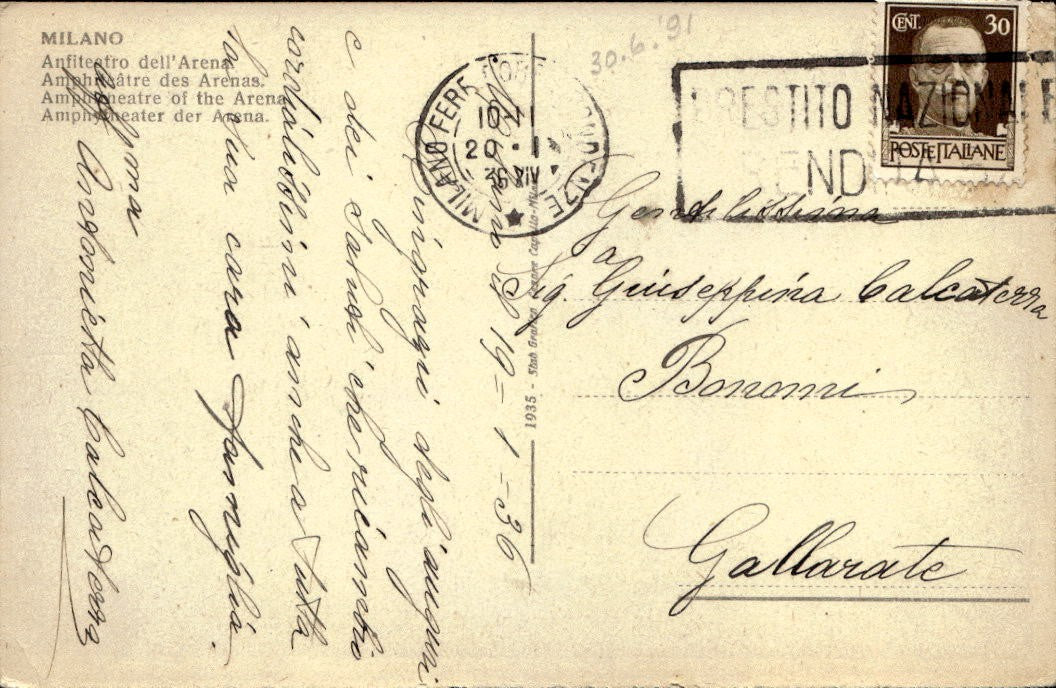 MILANO
Anfiteatro dell'Arena.
Amphithéâtre des Arenas.
Amphitheatre of the Arena.
Amphytheater der Arena.
Milano 19-1-36
ringrazio degl'auguri
e dei saluti che ricambio
cordialissimi anche a tutta
la sua cara famiglia.
Antonietta Calcaterra
1935 - Stab
MILANO FERR
10
20 · 1
36 XIV
30.6.'91
PRESTITO NAZIONALE
REND
CENT. 30
POSTE ITALIANE
Gentilissima
Sig.a Giuseppina Calcaterra
Bonomi
Gallarate